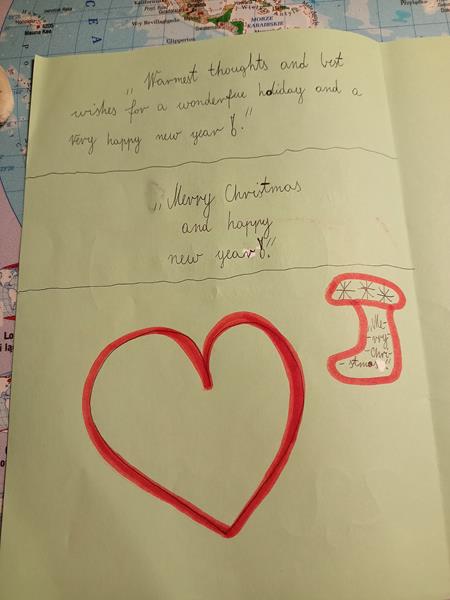 „Warmest thoughts and best
wishes for a wonderful holiday and a
very happy new year!."
„Merry Christmas
and happy
new year!."
„Me-
-rry
-Chri-
-stmas"
MORZE
KARAIBSKIE
Clipperton